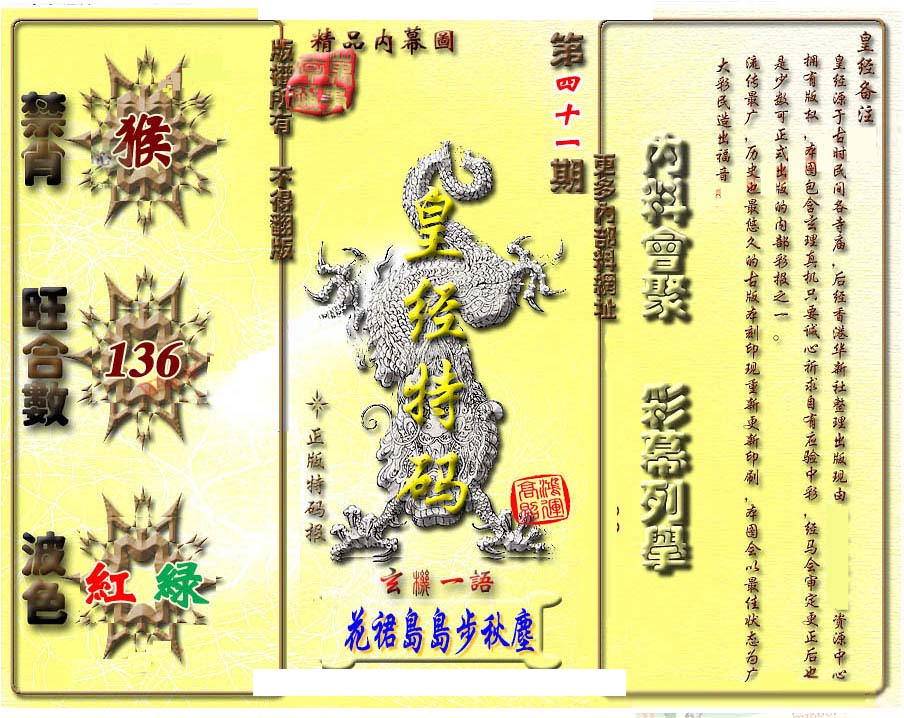 精品内幕圖
版權所有 不得翻版
第四十一期
更多內部料網址
禁肖
猴
旺合數
136
波色
紅 綠
皇经特码
正版特码报
鴻運高照
玄機一語
花裙島島步秋塵
內料會聚
彩幕列舉
皇经备注
皇经源于古时民间各寺庙，后经香港华新社整理出版现由 资源中心
拥有版权，本图包含玄理真机只要诚心祈求自有应验中彩，经马会审定更正后也
是少数可正式出版的内部彩报之一。
流传最广，历史也最悠久的古版本刻印现重新更新印刷，本图会以最佳状态为广
大彩民造出福音